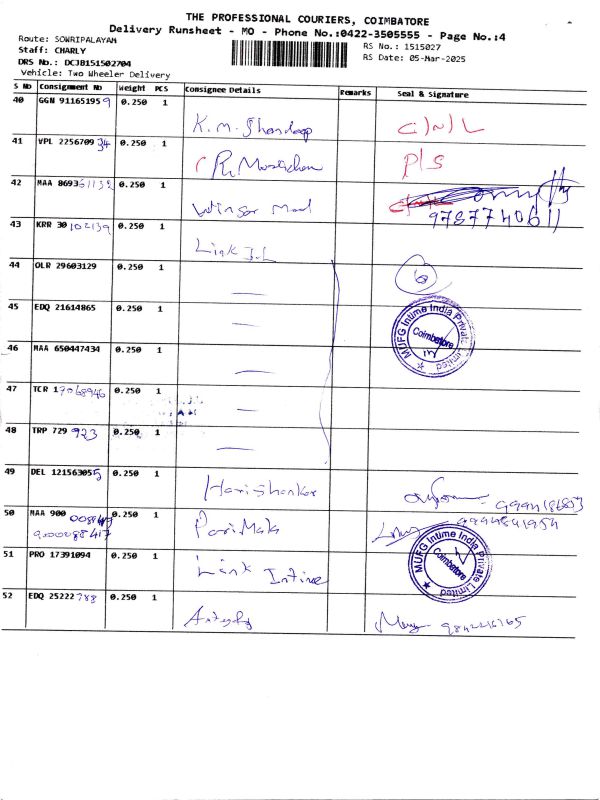 THE PROFESSIONAL COURIERS, COIMBATORE
Delivery Runsheet - MO - Phone No.:0422-3505555 - Page No.:4
Route: SOWRIPALAYAM
RS No.: 1515027
Staff: CHARLY
RS Date: 05-Mar-2025
DRS No.: DCJB151502704
Vehicle: Two Wheeler Delivery
S No Consignment No Weight PCS Consignee Details Remarks Seal & Signature
40 GGN 911651959 0.250 1
41 VPL 225670934 0.250 1 P/S
42 MAA 869361132 0.250 1
9787740611
43 KRR 30102139 0.250 1 Link I.L
44 OLR 29603129 0.250 1 — 6
45 EDQ 21614865 0.250 1 —
MUFG Intime India Private Limited
Coimbatore
46 MAA 650447434 0.250 1 —
47 TCR 17068946 0.250 1 —
48 TRP 729 923 0.250 1 —
49 DEL 1215630555 0.250 1 Harishankar
50 MAA 900 0.250 1
9000288417 9944841954
51 PRO 17391094 0.250 1 Link Intime
MUFG Intime India Private Limited
Coimbatore
52 EDQ 25222788 0.250 1